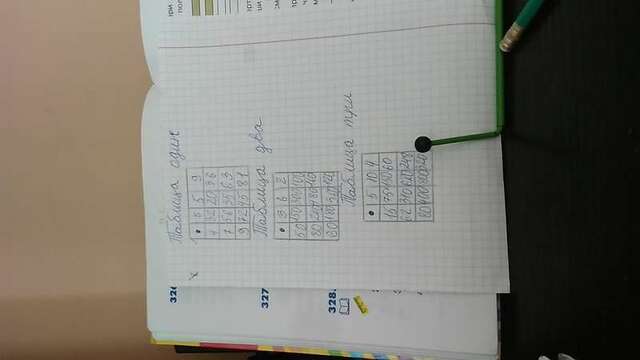 326
Таблица один
• 8 5 9
4 32 20 36
7 56 35 63
9 72 45 81
327
Таблица два
• 3 6 2
50 150 300 100
80 240 480 160
60 180
328.
Таблица три
• 5 10 4
15 75 150 60
62 310 620 248
80 400 800 320